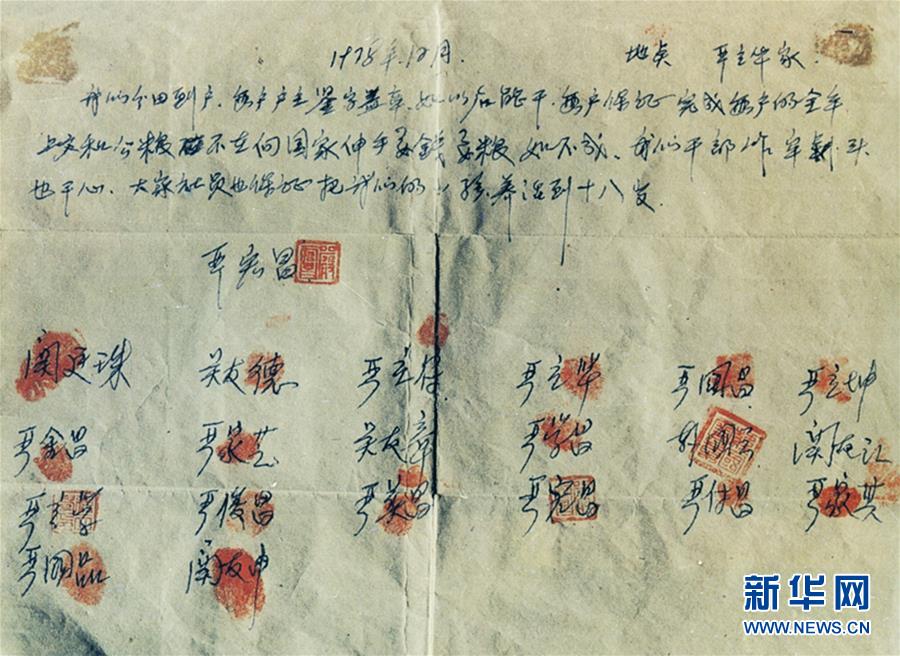 1978年12月. 地点 严立华家.
我们分田到户,每户户主鉴字盖章,如以后能干,每户保证完成每户的全年
上交和公粮 不在向国家伸手要钱要粮 如不成,我们干部作牢杀头
也干心,大家社员也保证把我们的小孩养活到十八岁.
严宏昌
関廷珠 关友德 严立符 严立华 严国昌 严立坤
严金昌 严家芝 关友章 严学昌 韩国云 関友江
严立学 严俊昌 严美昌 严宏昌 严付昌 严家其
严国品 関友申
新华网
WWW.NEWS.CN